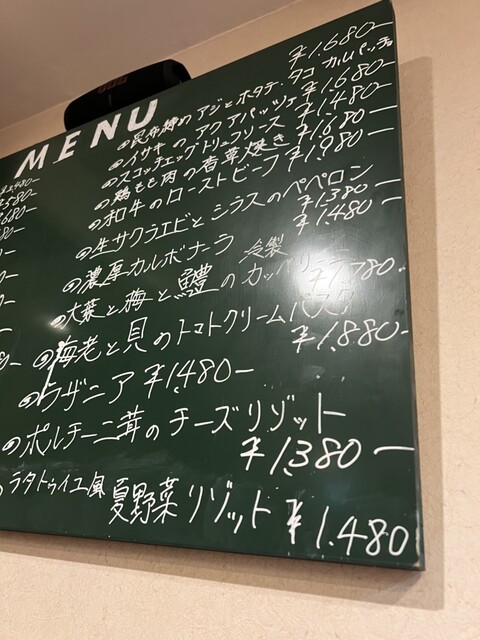 MENU
昆布締め アジとホタテ、タコ カルパッチョ ¥1.680-
イサキのアクアパッツェ ¥1.680-
スコッチエッグ トリュフソース ¥1.480-
鶏もも肉の香草焼き ¥1.680-
和牛のローストビーフ ¥1,980-
生サクラエビとシラスのペペロン ¥1.380-
濃厚カルボナーラ ¥1.480-
大葉と梅と鱧の冷製カッペリーニ ¥1.780-
海老と貝のトマトクリームパスタ ¥1.880-
ラザニア ¥1.480-
ポルチーニ茸のチーズリゾット
¥1.380-
ラタトゥイユ風 夏野菜リゾット ¥1.480